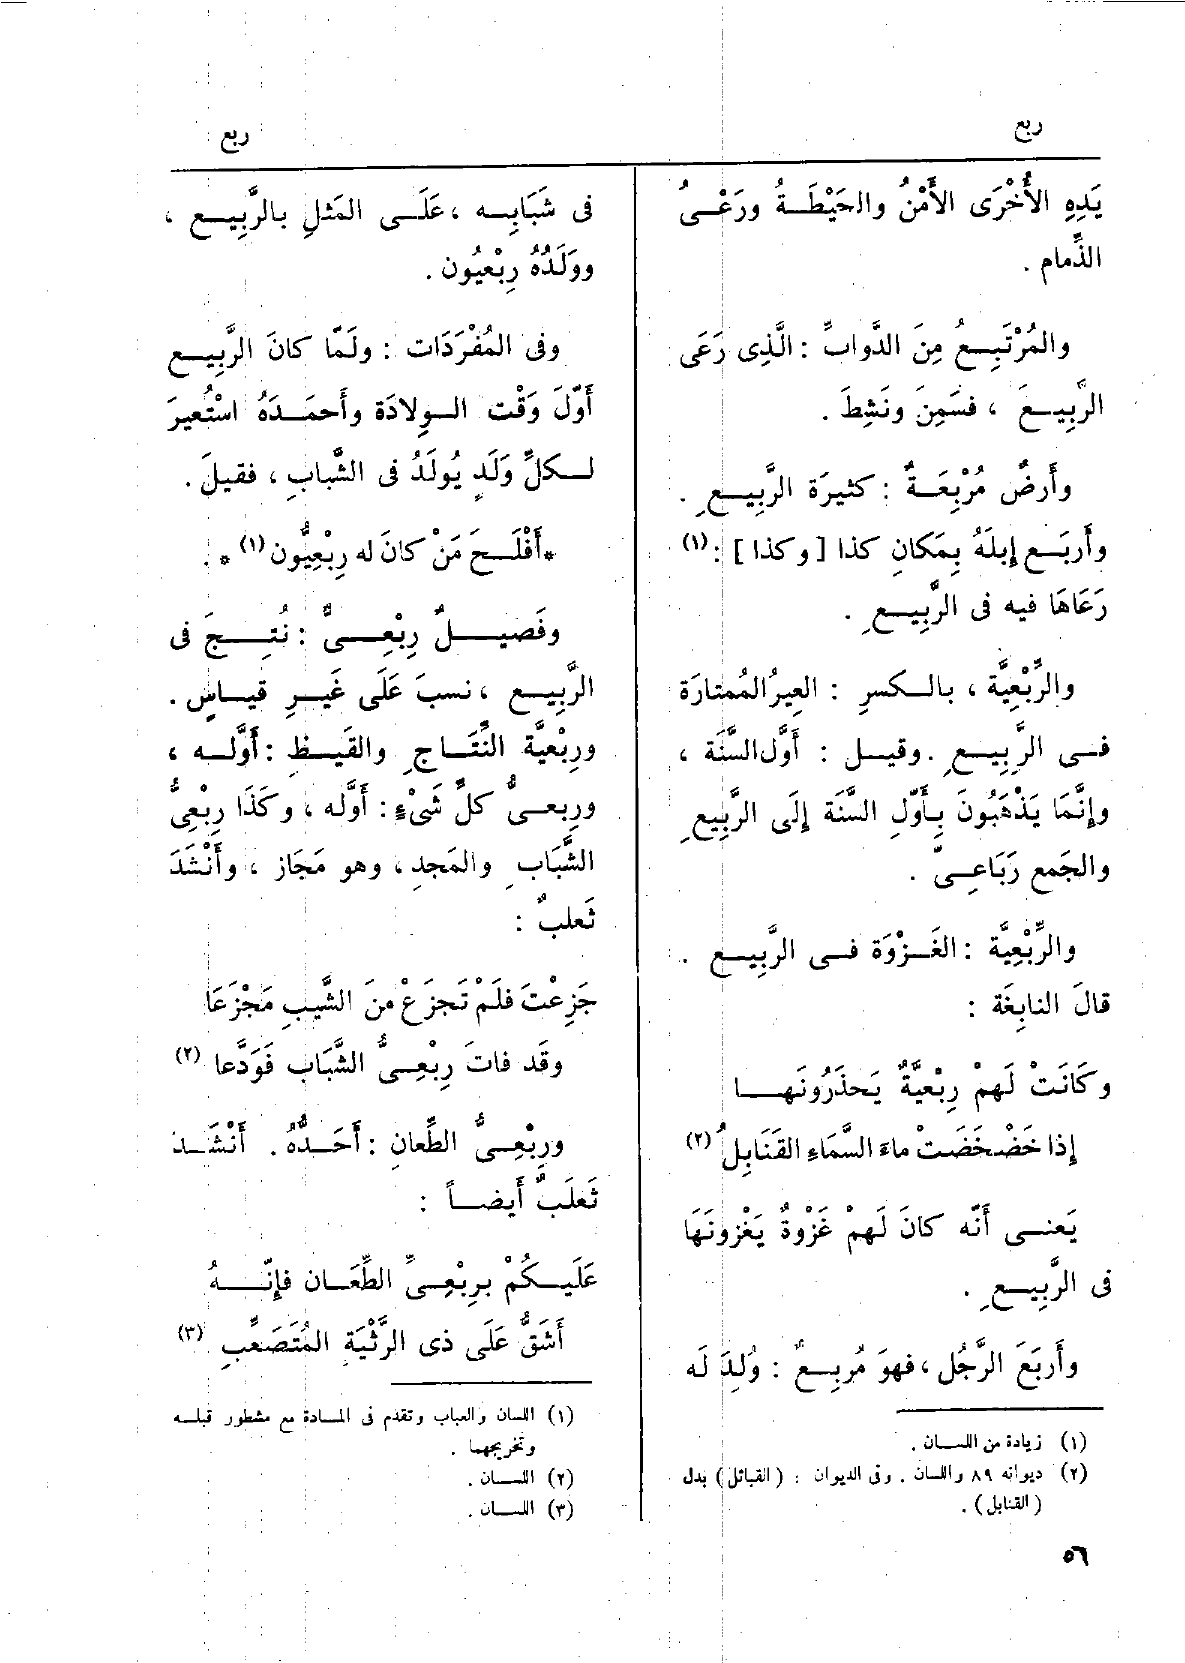 ربع
يَدِهِ الأُخْرَى الأَمْنُ والحَيْطَةُ ورَعْىُ
الذِّمام .
والمُرْتَبِعُ مِنَ الدَّوابِّ : الَّذِى رَعَى
الرَّبِيعَ ، فسَمِنَ ونَشِطَ .
وأَرضٌ مُرْبِعَةٌ : كثيرَة الرَّبِيعِ .
وأَربَع إبلَهُ بِمَكانِ كذا [ وكذا ] : (١)
رَعَاهَا فيه فى الرَّبِيعِ .
والرِّبْعِيَّة ، بالكسرِ : العِيرُ المُمتارَة
فى الرَّبِيعِ . وقيل : أَوَّل السَّنَة ،
وإنَّمَا يَذْهَبُونَ بِأَوّلِ السَّنَة إلَى الرَّبِيعِ
والجَمع رَبَاعِىّ .
والرِّبْعِيَّة : الغَزْوَة فى الرَّبِيع .
قالَ النابِغَة :
وكَانَتْ لَهمْ رِبْعيَّةٌ يَحذَرُونَها
إذا خَضْخَضَتْ ماءَ السَّمَاءِ القَنَابِلُ (٢)
يَعنى أَنّه كانَ لَهمْ غَزْوةٌ يَغْزونَهَا
فى الرَّبِيعِ .
وأَربَعَ الرَّجُل ، فهوَ مُربِعٌ : وُلِدَ لَه
(١) زيادة من اللسان .
(٢) ديوانه ٨٩ واللسان . وفى الديوان : (القبائل) بدل
(القنابل) .
٥٦
ربع
فى شَبَابِه ، عَلَى المَثلِ بالرَّبِيع ،
ووَلَدُهُ رِبْعيُون .
وفى المُفْرَدَات : ولَمّا كانَ الرَّبِيع
أَوّلَ وَقْت الولادَة وأَحمَدَهُ اسْتُعيرَ
لكلِّ وَلَدٍ يُولَدُ فى الشَّبابِ ، فقيلَ .
*أَفْلَحَ مَنْ كانَ له رِبْعِيُّون (١) * .
وفَصيلٌ رِبْعِىٌّ : نُتِجَ فى
الرَّبِيع ، نسبَ عَلَى غَيرِ قياسٍ .
ورِبْعيَّة النِّتَاجِ والقَيظِ : أَوَّله ،
ورِبعىُّ كلِّ شَىْءٍ : أَوَّله ، وكَذَا رِبْعِىُّ
الشَّبَابِ والمَجدِ ، وهو مَجَاز ، وأَنْشَدَ
ثَعلبٌ :
جَزِعْتَ فلَمْ تَجزَعْ منَ الشَّيبِ مَجْزَعَا
وقَد فاتَ رِبْعِىُّ الشَّبَابِ فَوَدَّعا (٢)
ورِبْعِىُّ الطِّعانِ : أَحَدُّهُ . أَنْشَدَ
ثَعلَبٌ أَيضاً :
عَلَيكُمْ بربْعِىِّ الطِّعَان فإنّهُ
أَشَقُّ عَلَى ذى الرَّثْيَة المُتَصَعِّبِ (٣)
(١) اللسان والعباب وتقدم فى المادة مع مشطور قبله
وتخريجهما .
(٢) اللسان .
(٣) اللسان .